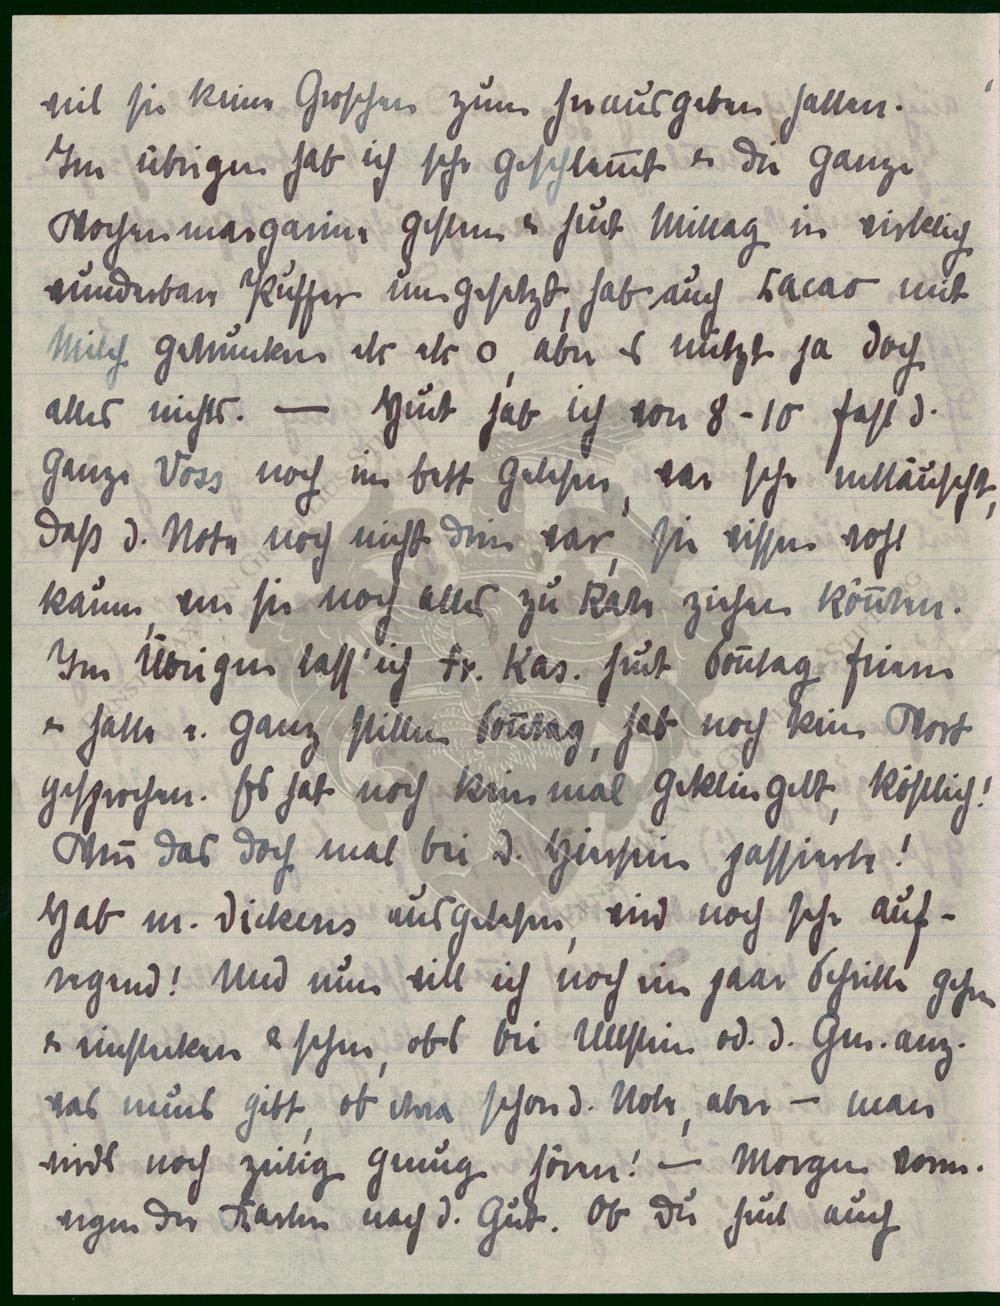 weil sie keine Groschen zum herausgeben hatten.
Im übrigen hab ich sehr geschlemmt & die ganze
Wochenmargarine gestern & heut Mittag in wirklich
wunderbare Puffer umgesetzt, hab auch Cacao mit
Milch getrunken etc etc o, aber es nützt ja doch
alles nichts. — Heut hab ich von 8-10 fast d.
ganze Voss noch im Bett gelesen, war sehr enttäuscht,
daß d. Note noch nicht drin war, sie wissen wohl
kaum, wen sie noch alles zu Rate ziehen könnten.
Im Übrigen lass' ich Fr. Kas. heut Sonntag feiern
& halte e. ganz stillen Sonntag, hab noch kein Wort
gesprochen. Es hat noch kein mal geklingelt, köstlich!
Wenn das doch mal bei d. passierte!
Hab m. Dickens ausgelesen, wird noch sehr auf-
regend! Und nun will ich noch ein paar Schritte gehen
& einstecken & sehen, obs bei Ullstein od. d. Gen. anz.
was neues gibt, ob etwa schon d. Note, aber — man
wirds noch zeitig genug hören! — Morgen vorm.
wegen der Karten nach d. Ob Du heut auch
HANSTEDT